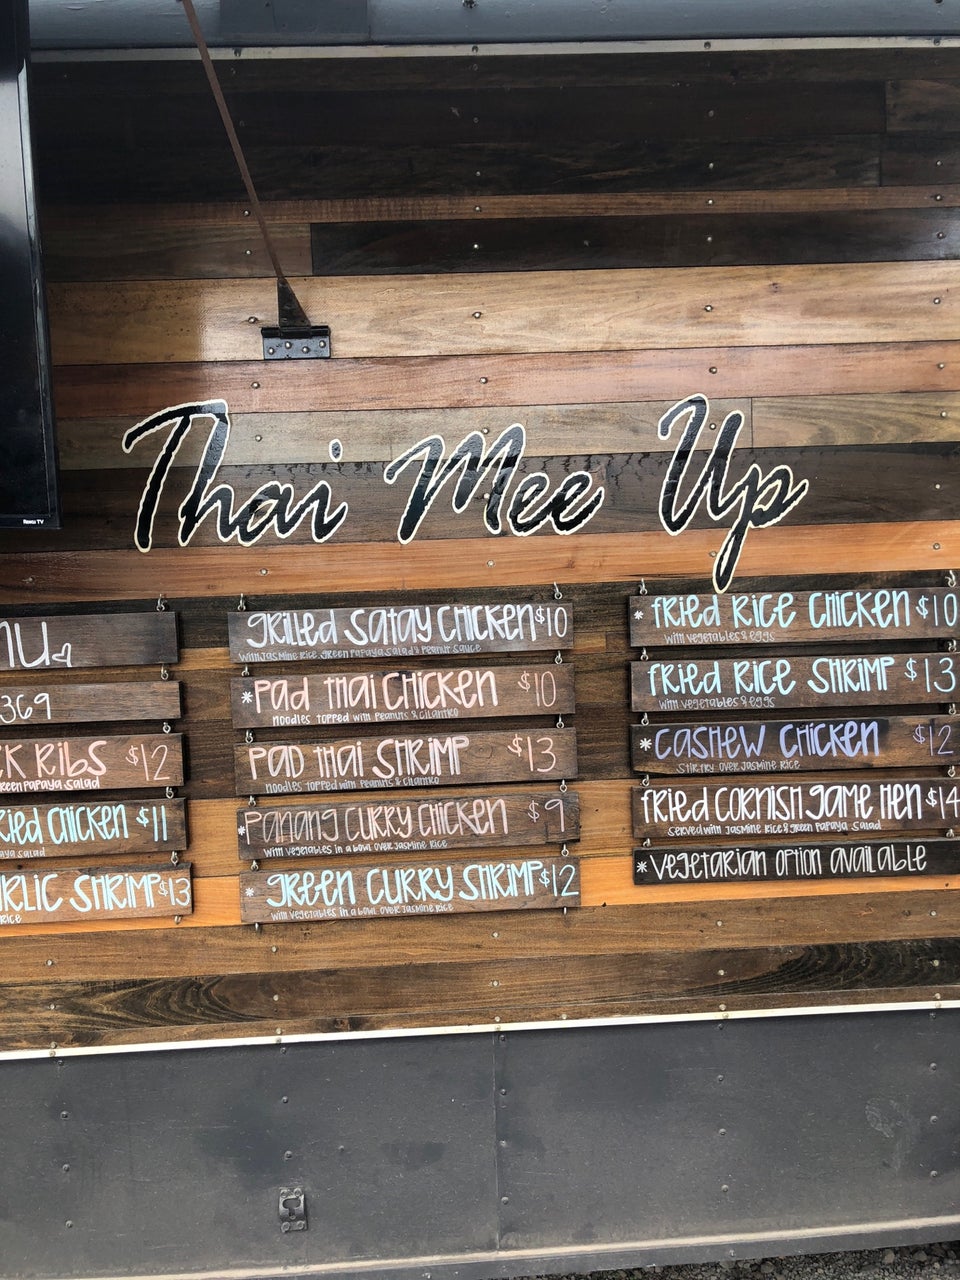 Roku TV
Thai Mee Up
NU
369
CK RIBS $12
REEN PAPAYA SALAD
RIED CHICKEN $11
AYA SALAD
RLIC SHRIMP $13
RICE
GRILLED SATAY CHICKEN $10
WITH JASMINE RICE, GREEN PAPAYA SALAD & PEANUT SAUCE
*PAD THAI CHICKEN $10
NOODLES TOPPED WITH PEANUTS & CILANTRO
PAD THAI SHRIMP $13
NOODLES TOPPED WITH PEANUTS & CILANTRO
*PANANG CURRY CHICKEN $9
WITH VEGETABLES IN A BOWL OVER JASMINE RICE
* GREEN CURRY SHRIMP $12
WITH VEGETABLES IN A BOWL OVER JASMINE RICE
* FRIED RICE CHICKEN $10
WITH VEGETABLES & EGGS
FRIED RICE SHRIMP $13
WITH VEGETABLES & EGGS
*CASHEW CHICKEN $12
STIR FRY OVER JASMINE RICE
FRIED CORNISH GAME HEN $14
SERVED WITH JASMINE RICE & GREEN PAPAYA SALAD
*VEGETARIAN OPTION AVAILABLE